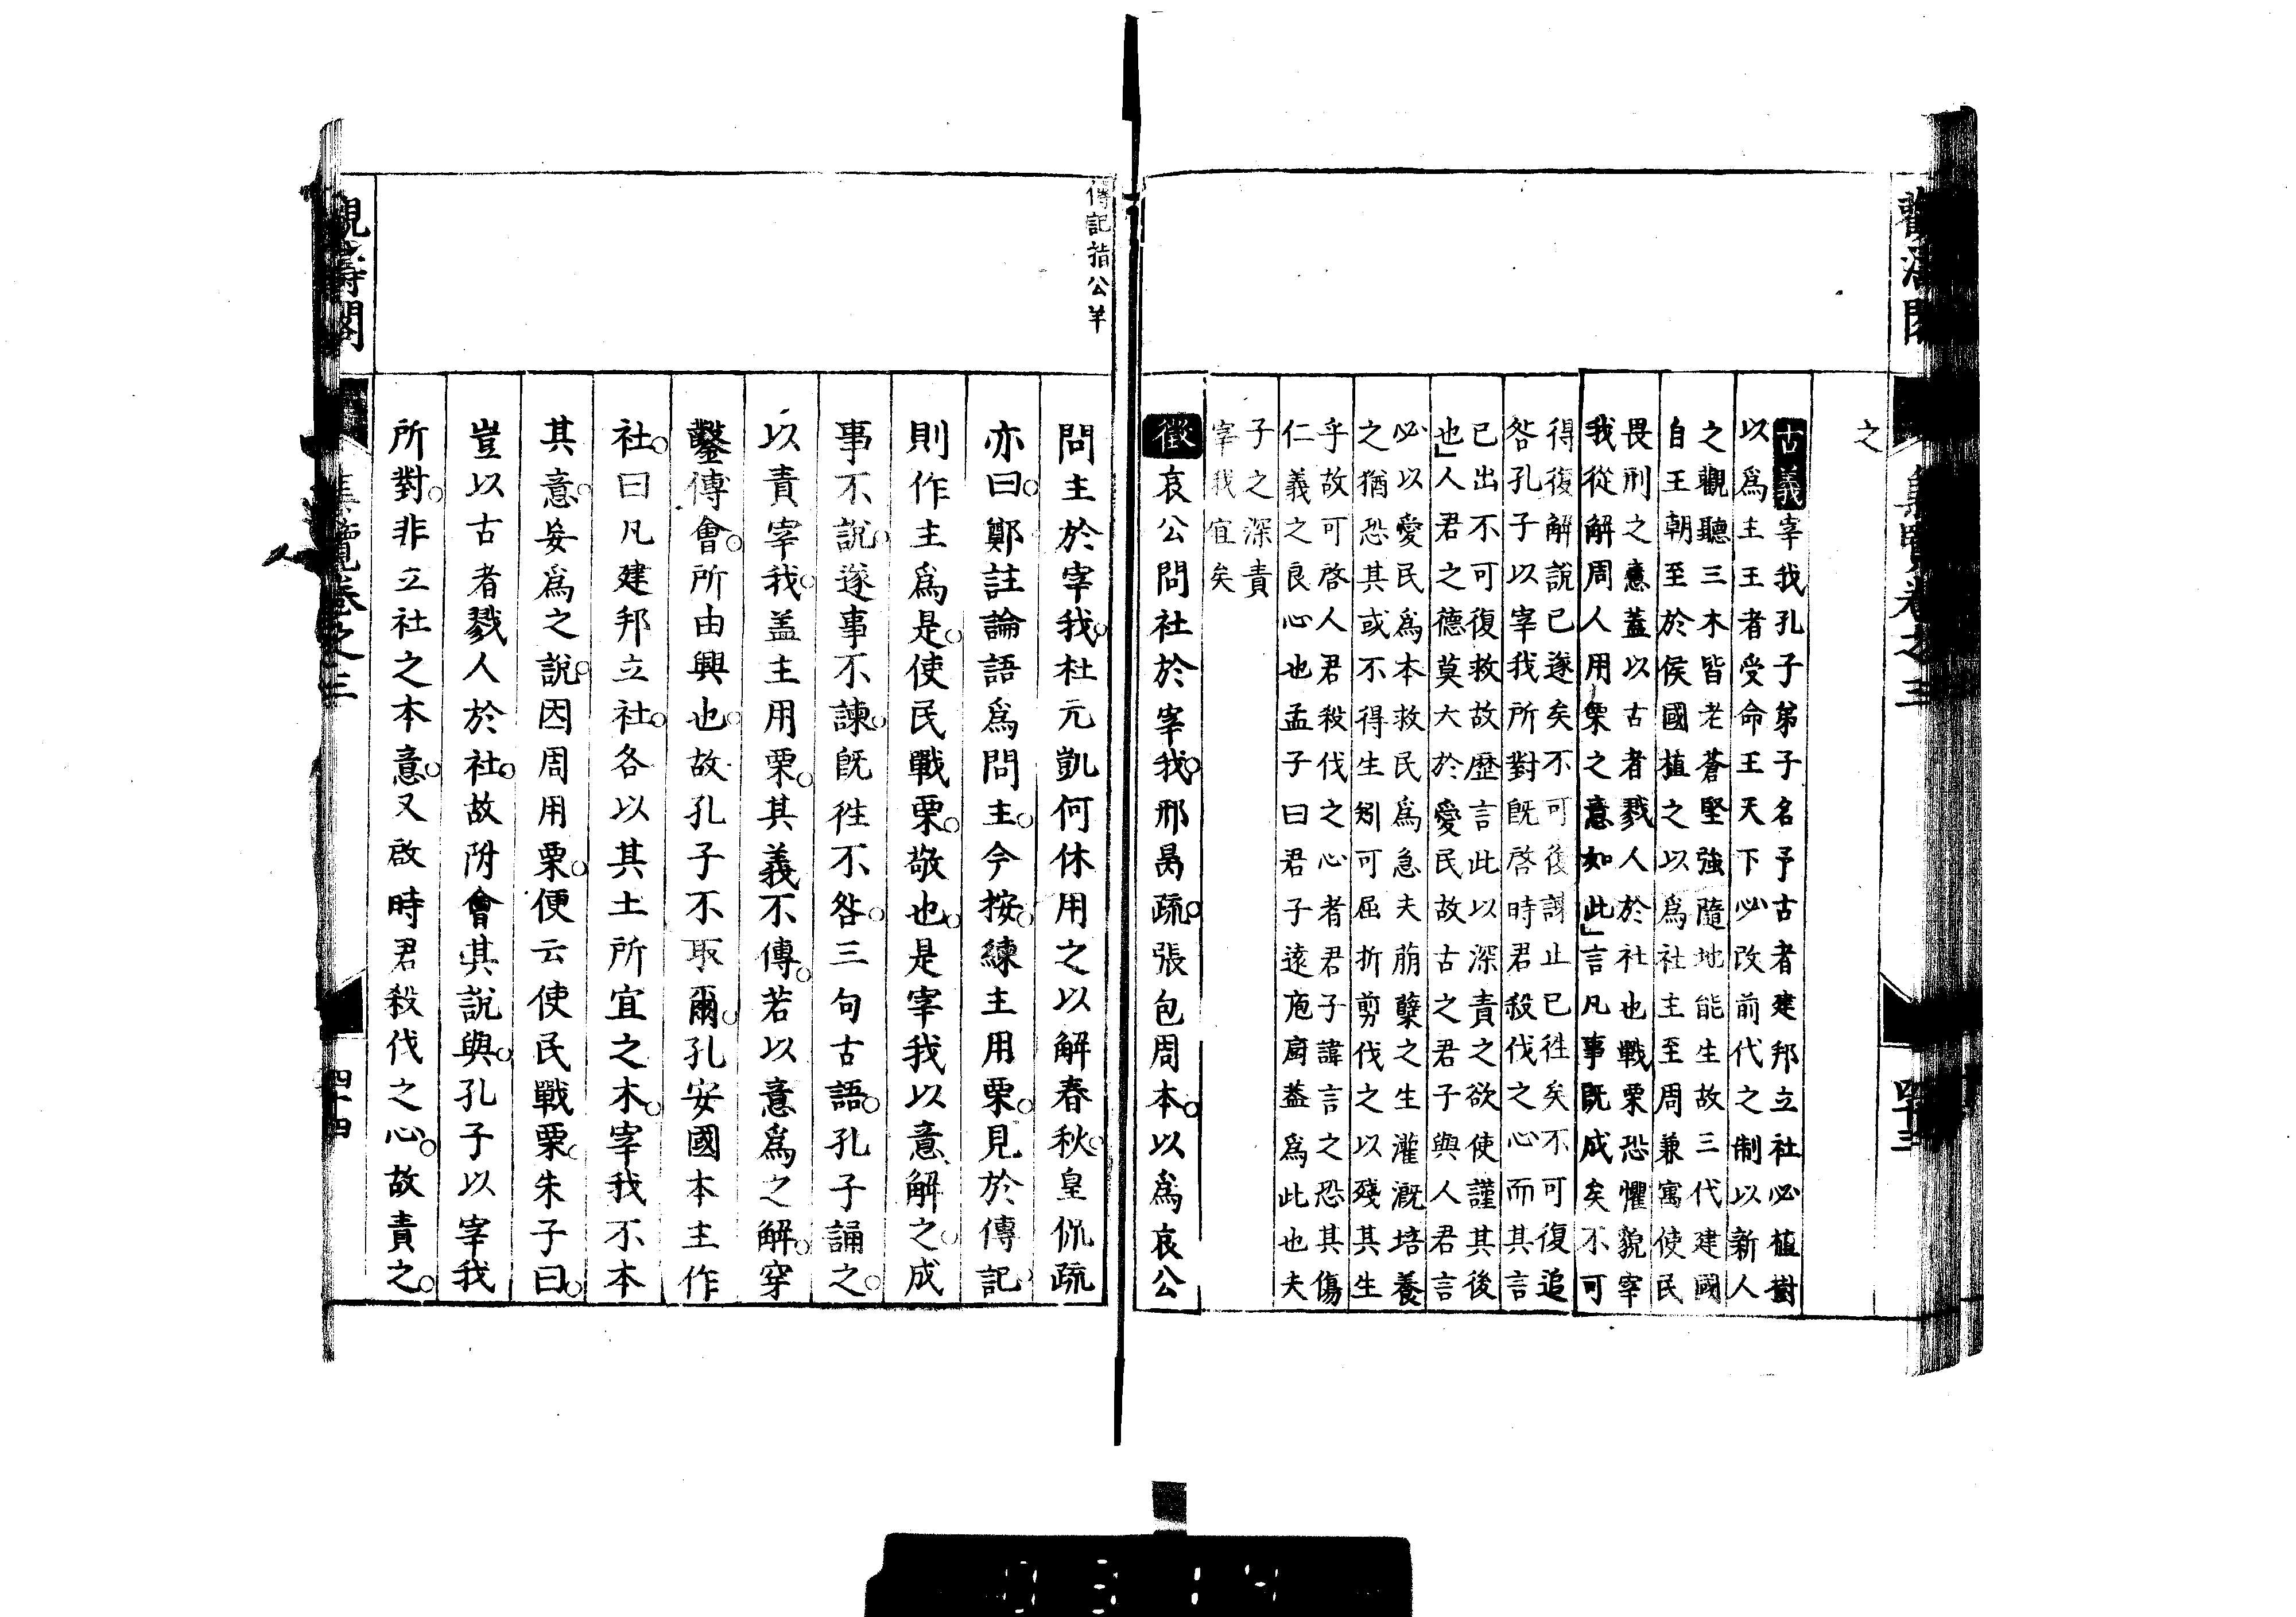 觀濤閣
集覽卷之三
四十三
之
古義宰我孔子弟子名予古者建邦立社必植樹
以爲主王者受命王天下必改前代之制以新人
之觀聽三木皆老蒼堅強隨地能生故三代建國
自王朝至於侯國植之以爲社主至周兼寓使民
畏刑之意蓋以古者戮人於社也戰栗恐懼貌宰
我從解周人用栗之意如此」言凡事既成矣不可
得復解說已遂矣不可復諫止已徃矣不可復追
咎孔子以宰我所對既啓時君殺伐之心而其言
已出不可復救故歷言此以深責之欲使謹其後
也」人君之德莫大於愛民故古之君子與人君言
必以愛民爲本救民爲急夫萠孽之生灌溉培養
之猶恐其或不得生矧可屈折剪伐之以殘其生
乎故可啓人君殺伐之心者君子諱言之恐其傷
仁義之良心也孟子曰君子遠庖廚蓋爲此也夫
子之深責
宰我宜矣
徵哀公問社於宰我。邢昺疏。張包周本。以爲哀公
傳記指公羊
問主於宰我。杜元凱何休用之以解春秋。皇侃疏
亦曰。鄭註論語爲問主。今按。練主用栗。見於傳記。
則作主爲是。使民戰栗。敬也。是宰我以意解之。成
事不說。遂事不諫。既徃不咎。三句古語。孔子誦之。
以責宰我。盖主用栗。其義不傳。若以意爲之解。穿
鑿傅會。所由興也。故孔子不取爾。孔安國本主作
社。曰凡建邦立社。各以其土所宜之木。宰我不本
其意。妄爲之說。因周用栗。便云使民戰栗。朱子曰。
豈以古者戮人於社。故附會其說與。孔子以宰我
所對。非立社之本意。又啟時君殺伐之心。故責之。
觀濤閣
集覽卷之三
四十四